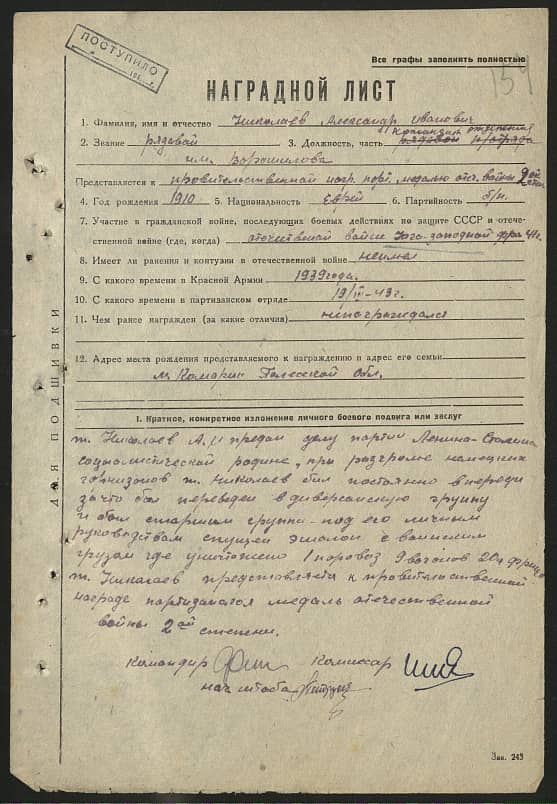 ПОСТУПИЛО
Все графы заполнять полностью
154
НАГРАДНОЙ ЛИСТ
1. Фамилия, имя и отчество Николаев Александр Иванович
2. Звание рядовой 3. Должность, часть рядовой п/отряда
командир отделения
им. Ворошилова
Представляется к правительственной нагр. парт. медалью отеч. войны 2ой степ.
4. Год рождения 1910 5. Национальность Еврей 6. Партийность б/п.
7. Участие в гражданской войне, последующих боевых действиях по защите СССР и отече-
ственной войне (где, когда) отечествной войне Юго-западной фр. 41г.
8. Имеет ли ранения и контузии в отечественной войне неимел
9. С какого времени в Красной Армии 1939года.
10. С какого времени в партизанском отряде 19/III-43г.
11. Чем ранее награжден (за какие отличия) ненаграждался
12. Адрес места рождения представляемого к награждению и адрес его семьи
м. Комарин Полесской Обл.
ДЛЯ ПОДШИВКИ
I. Краткое, конкретное изложение личного боевого подвига или заслуг
т. Николаев А.И предан делу партии Ленина-Сталина
социалистической родине, при разгроме немецких
гарнизонов т. Николаев был постоянно впереди
за что был переведен в диверсионую группу
и был старшим группы под его личным
руководствам спущен эшалон с воинским
грузом где уничтожено 1 поровоз 9 вагонов 20
т. Николаев представляется к правительственной
награде партизанской медаль отечественной
войны 2ой степени.
Командир Комиссар
нач штоба
Зак. 243